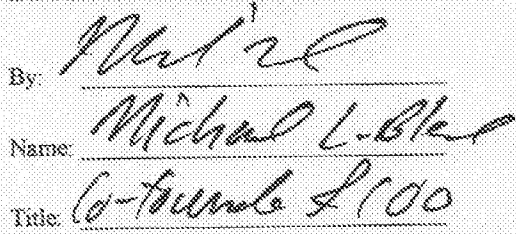 By:
Name: Michael L.
Title: Co-founder & COO